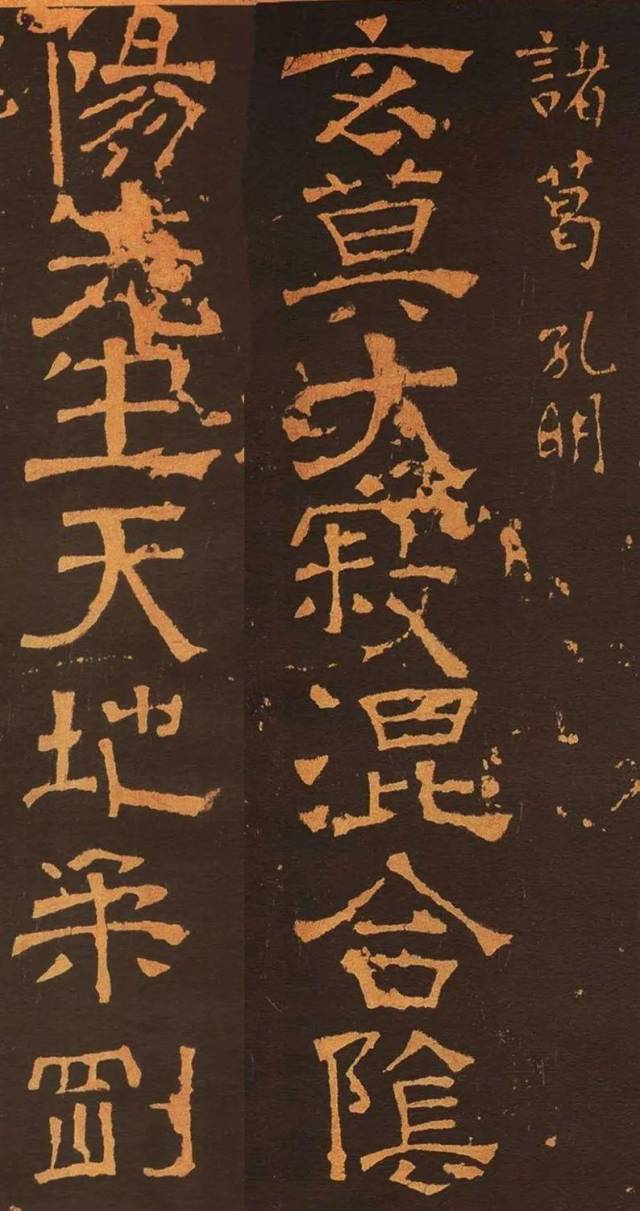 諸葛孔明
玄莫大寂混合陰
陽生天地柔剛